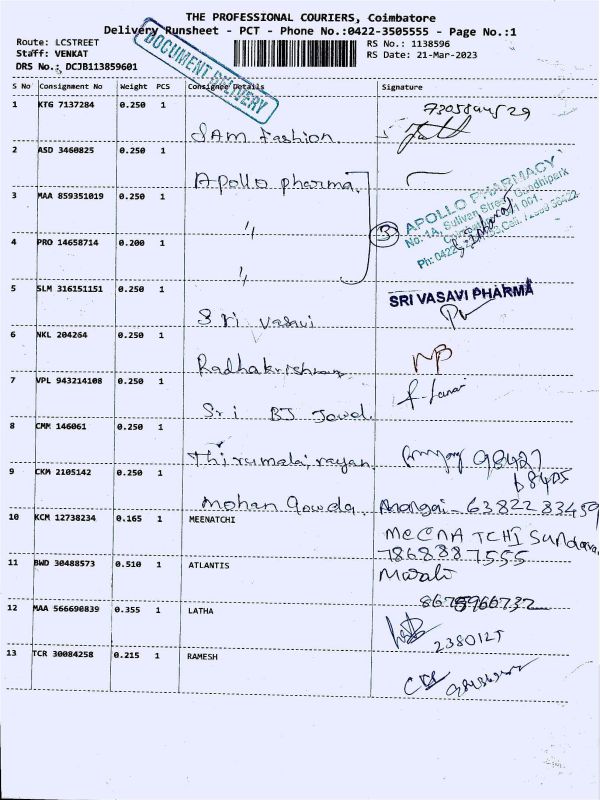 THE PROFESSIONAL COURIERS, Coimbatore
Delivery Runsheet - PCT - Phone No.:0422-3505555 - Page No.:1
Route: LCSTREET
RS No.: 1138596
Staff: VENKAT
RS Date: 21-Mar-2023
DRS No.: DCJB113859601
DOCUMENT DELIVERY
S No Consignment No Weight PCS Consignee Details Signature
1 KTG 7137284 0.250 1
SAm Fashion.
2 ASD 3460825 0.250 1
Apollo pharma.
3 MAA 859351019 0.250 1
"
3
APOLLO PHARMACY
No: 1A, Sullivan Street, Gandhipark
4 PRO 14658714 0.200 1
"
5 SLM 316151151 0.250 1
SRI VASAVI PHARMA
Sri vasavi
6 NKL 204264 0.250 1
Radhakrishnan
7 VPL 943214108 0.250 1
Sri BJ Jowel.
8 CMM 146061 0.250 1
Thirumalairayan
98427
9 CKM 2105142 0.250 1
Mohan Gowda.
Mangai - 6382283459
10 KCM 12738234 0.165 1 MEENATCHI
MeeNA TCHI Sundara
7868887555
11 BWD 30488573 0.510 1 ATLANTIS
Murali
12 MAA 566690839 0.355 1 LATHA
13 TCR 30084258 0.215 1 RAMESH